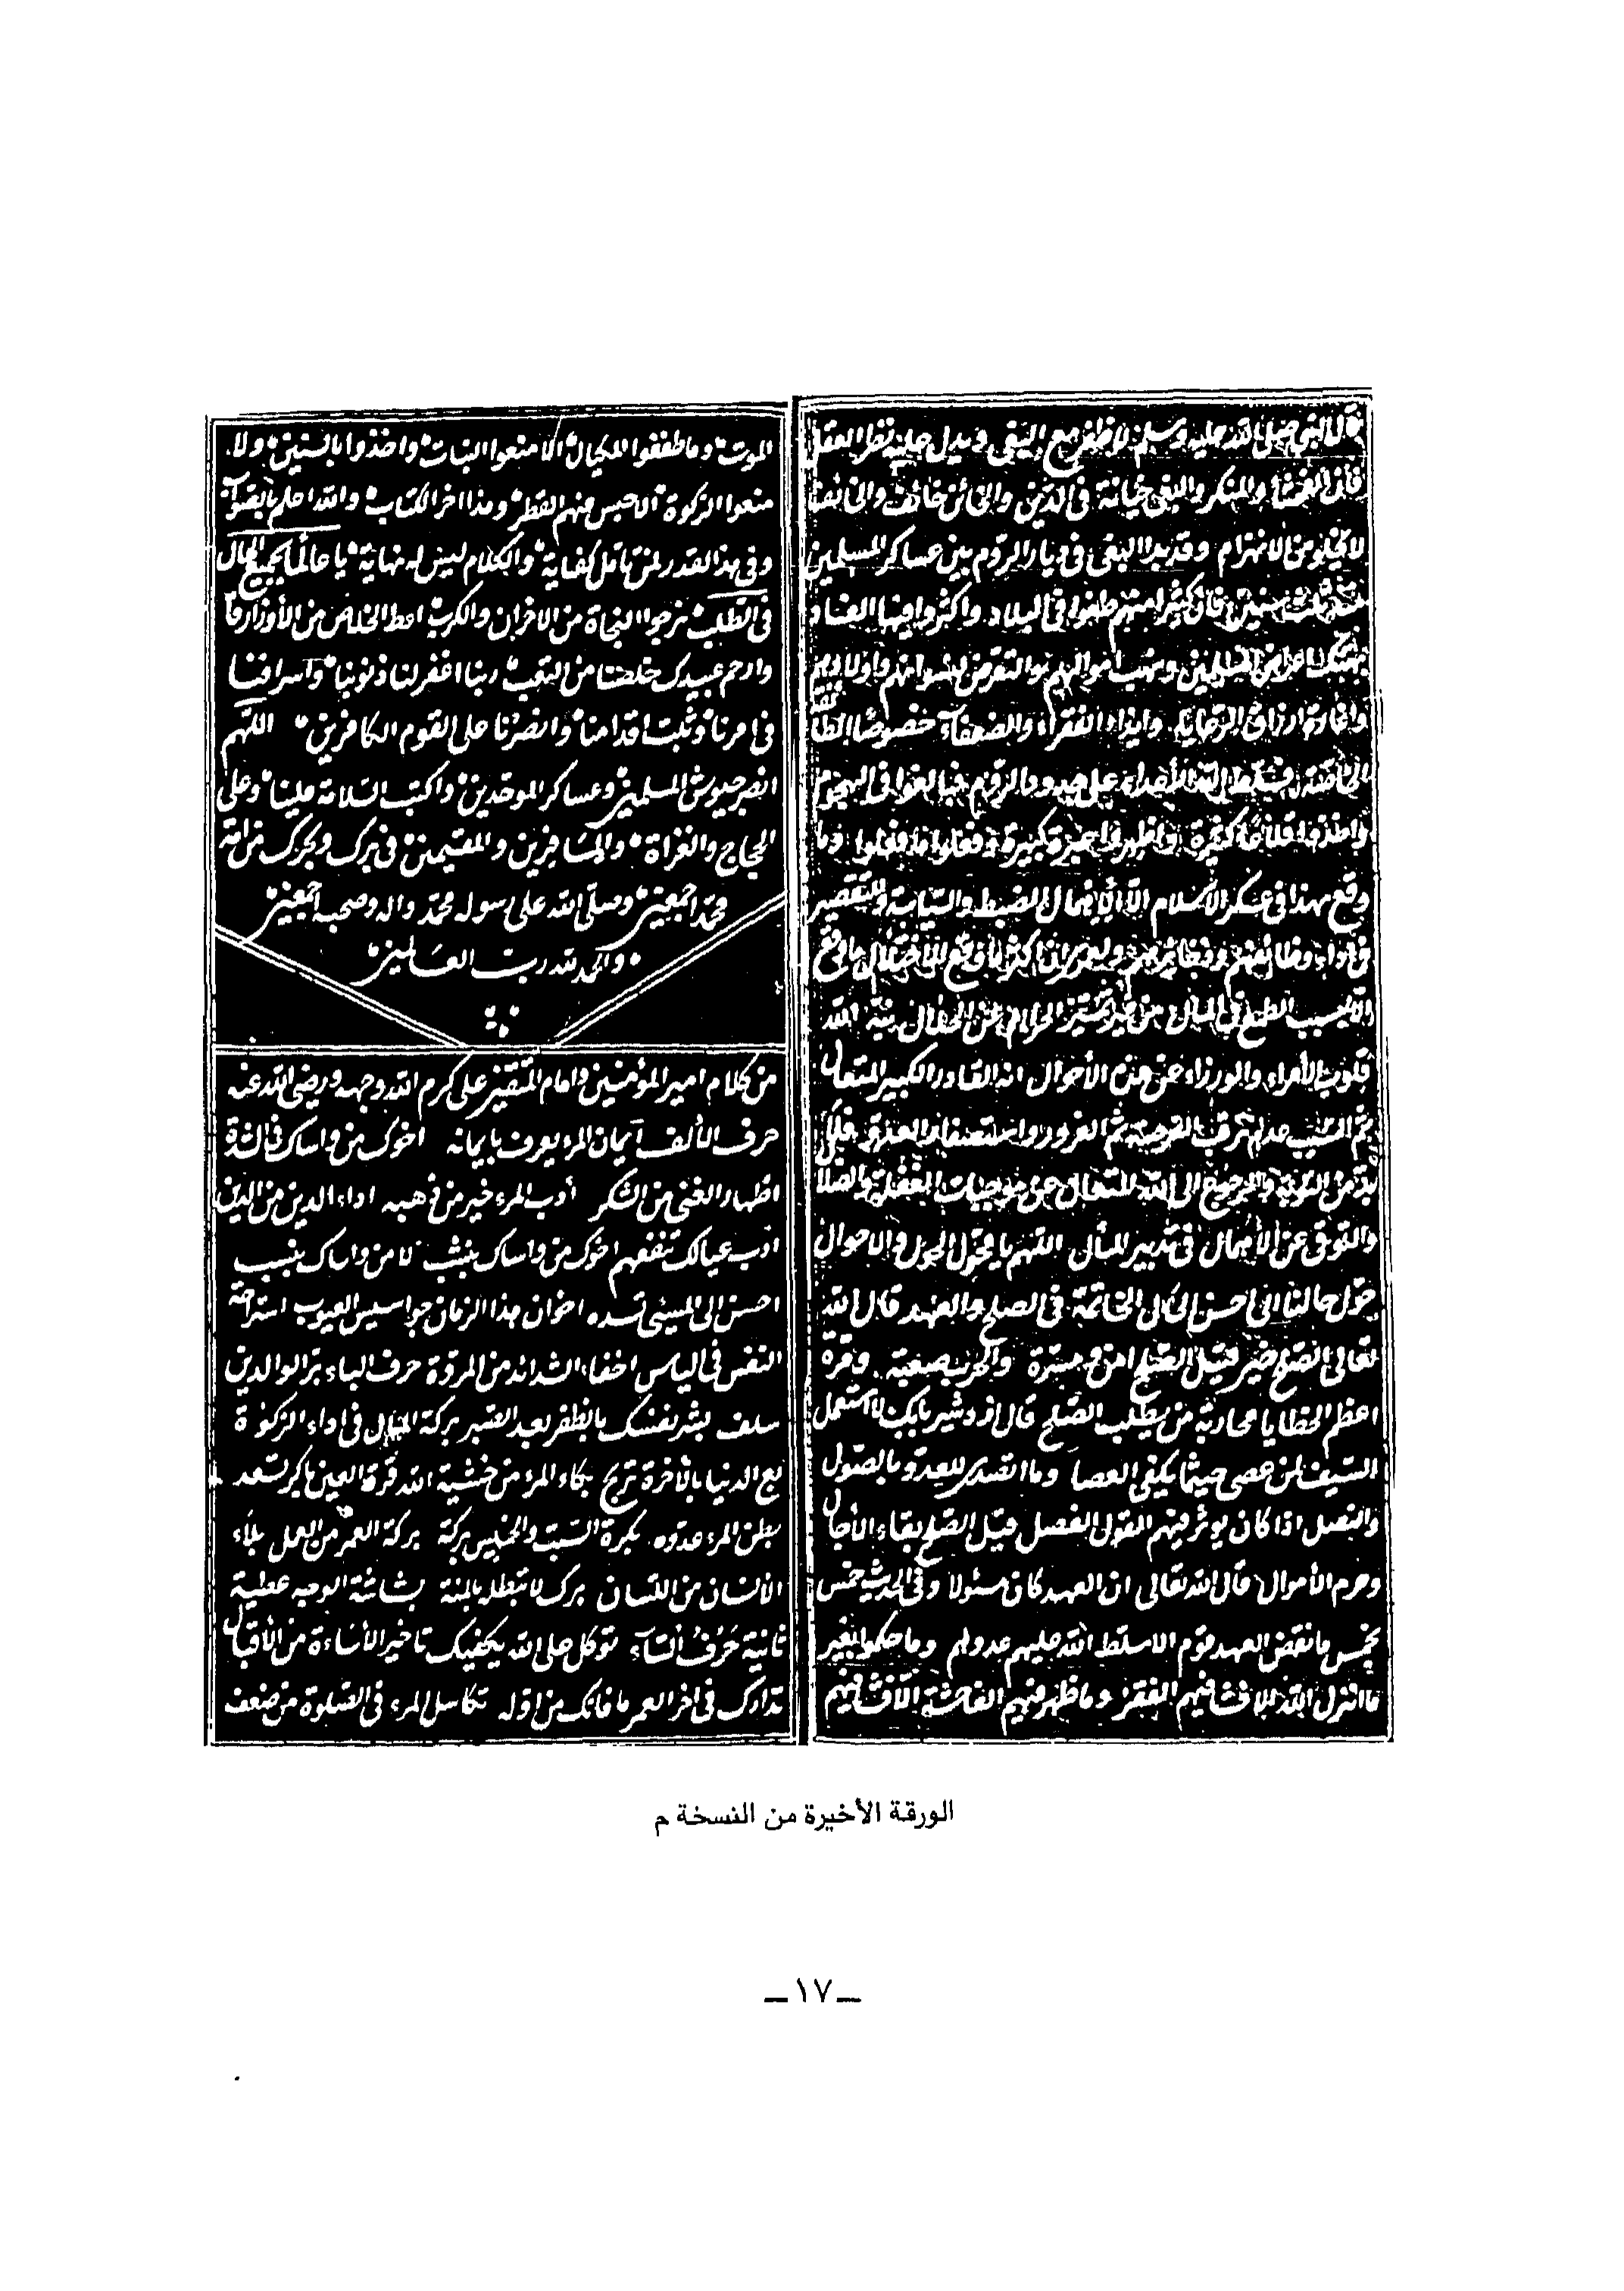 قال النبي صلى الله عليه وسلم لا ظفر مع البغي ويدل عليه نظر العقل
فان الفحشا والمنكر والبغي خيانة في الدين والخائن خائف والخائف
لا يخلو من الانهزام وقد بدا البغي في ديار الروم بين عساكر المسلمين
ثلث سنين فان كثيرا منهم طغوا في البلاد واكثروا فيها الفساد
اعراض المسلمين ونهب اموالهم والتعرض لنسوانهم واولادهم
وغارة ارزاق الرعايا وايذاء الفقراء والضعفآء خصوصا الطا
ئفة الله الأعداء على حدود الروم فبالغوا في الهجوم
واخذوا قلاعا كثيرة واظهروا كبيرة وفعلوا ما فعلوا وما
وقع هذا في عسكر الأسلام الا لأهمال الضبط والسياسة والتقصير
في اداء وظائفهم اكثر ما وقع الاختلال ما وقع
الا بسبب الطمع في المال من غير تمييز الحرام عن الحلال الله
قلوب الأمراء والوزراء عن هذه الأحوال انه القادر الكبير المتعال
ثم السبب ثم الغرور واستصغار العدو
بد من التوبة والرجوع الى الله المتعال عن موجبات الغفلة والضلا
والتوقى عن الأهمال في تدبير المأل اللهم يا محول الحول والاحوال
حول حالنا الى احسن الحال الخاتمة في الصلح والعهد قال الله
تعالى الصلح خير قيل الصلح امن ومسرة والحرب صعبة ومرة
اعظم الخطايا محاربة من يطلب الصلح قال ازدشير بابك لا استعمل
السيف لمن عصى حيثما يكفى العصا وما اتصدى للعدو بالصول
والنصل اذا كان يوثر فيهم القول الفصل قيل الصلح بقاء الأجال
وحرم الأموال قال الله تعالى ان العهد كان مسئولا وفي الحديث خمس
بخمس ما نقض العهد قوم الا سلط الله عليهم عدوهم وما حكموا بغير
ما انزل الله الا فشا فيهم الفقر وما ظهر فيهم الفاحشة الا فشا فيهم
الموت وما طففوا المكيال الا منعوا النبات واخذوا بالسنين ولا
منعوا الزكوة الا حبس عنهم القطر وهذا اخر الكتاب والله اعلم بالصواب
وفي هذا القدر لمن تأمل كفاية والكلام ليس له نهاية يا عالما بجميع الحال
في الطلب نرجوا النجاة من الاحزان والكرب اعط الخلاص من الأوزار
وارحم عبيدك خلصنا من التعب ربنا اغفر لنا ذنوبنا واسرافنا
في امرنا وثبت اقدامنا وانصرنا على القوم الكافرين اللهم
انصر جيوش المسلمين وعساكر الموحدين واكتب السلامة علينا وعلى
الحجاج والغزاة والمسافرين والمقيمين في برك وبحرك من امة
محمد اجمعين وصلى الله على رسوله محمد واله وصحبه اجمعين
والحمد لله رب العالمين
من كلام امير المؤمنين وامام المتقين على كرم الله وجهه ورضى الله عنه
حرف الألف ايمان المرء يعرف بايمانه اخوك من واساك في الشدة
اظهار الغنى من الشكر أدب المرء خير من ذهبه اداء الدين من الدين
أدب عيالك تنفعهم اخوك من واساك بنشب لا من واساك بنسب
احسن الى المسئ تسده اخوان هذا الزمان جواسيس العيوب استراحة
النفس في الياس اخفاء الشدائد من المروة حرف الباء بر الوالدين
سلف بشر نفسك بالظفر بعد الصبر بركة المال في اداء الزكوة
بع الدنيا بالأخرة تربح بكاء المرء من خشية الله قرة العين باكر تسعد
بطن المرء عدوه بكرة السبت والخميس بركة بركة العمر من العمل بلاء
الأنسان من اللسان برك لا تبطله بالمنة بشاشة الوجه عطية
ثانية حرف التاء توكل على الله يكفيك تاخير الأساءة من الأقبال
تدارك في اخر العمر ما فاتك من اوله تكاسل المرء في الصلوة من ضعف
الورقة الأخيرة من النسخة م
ـ ١٧ ـ